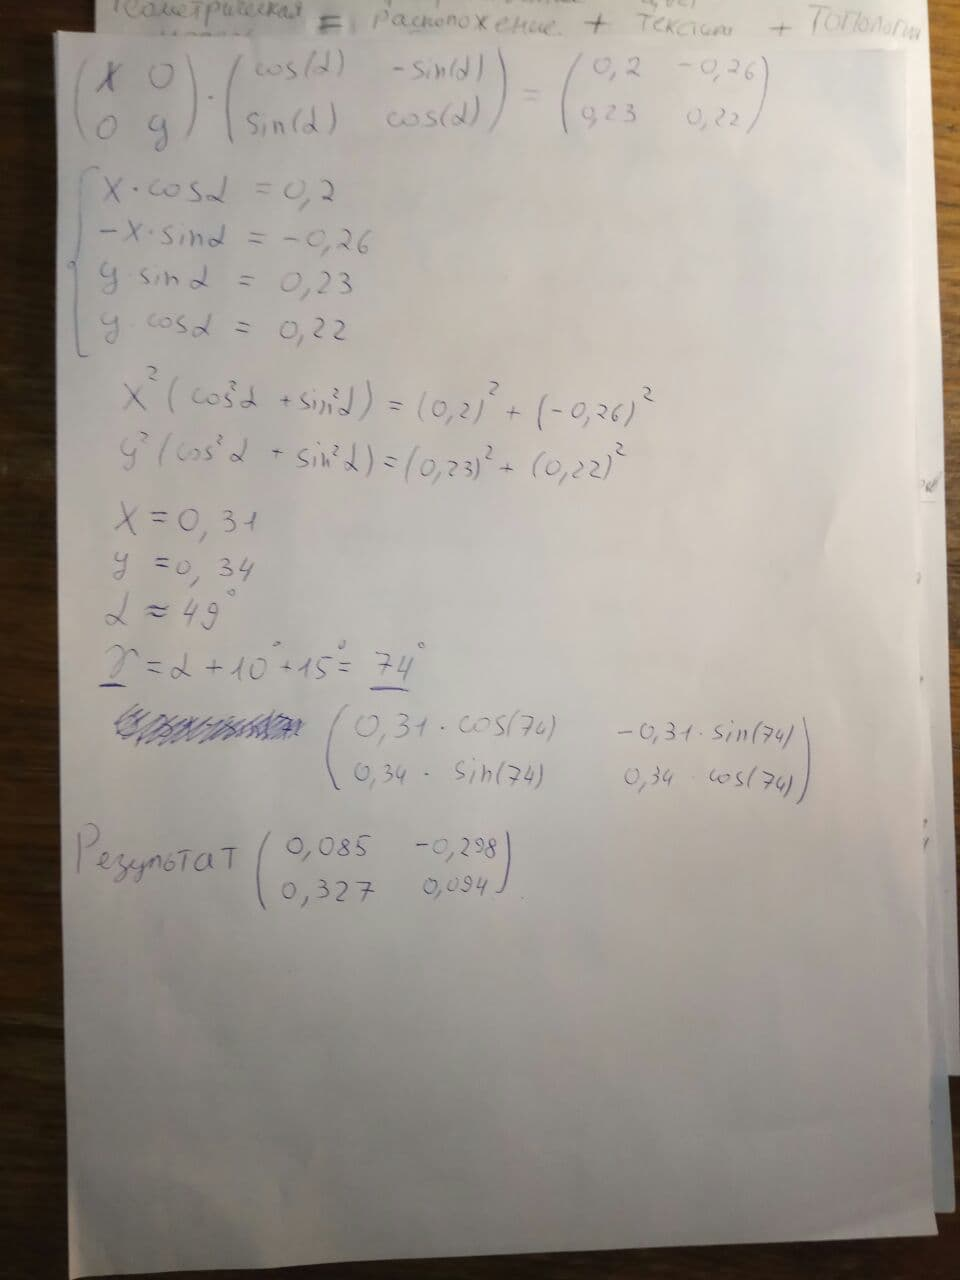 Геометрическая = Расположение + Текстит + Топологи
(x 0) · (cos(α) -sin(α)) = (0,2 -0,26)
(0 y) (sin(α) cos(α)) (0,23 0,22)
x·cosα = 0,2
-x·sinα = -0,26
y sinα = 0,23
y·cosα = 0,22
x²(cos²α + sin²α) = (0,2)² + (-0,26)²
y²(cos²α + sin²α) = (0,23)² + (0,22)²
x = 0,31
y = 0,34
α ≈ 49°
γ = α + 10° + 15° = 74°
(0,31·cos(74) -0,31·sin(74))
(0,34· sin(74) 0,34·cos(74))
Результат (0,085 -0,298)
(0,327 0,094)